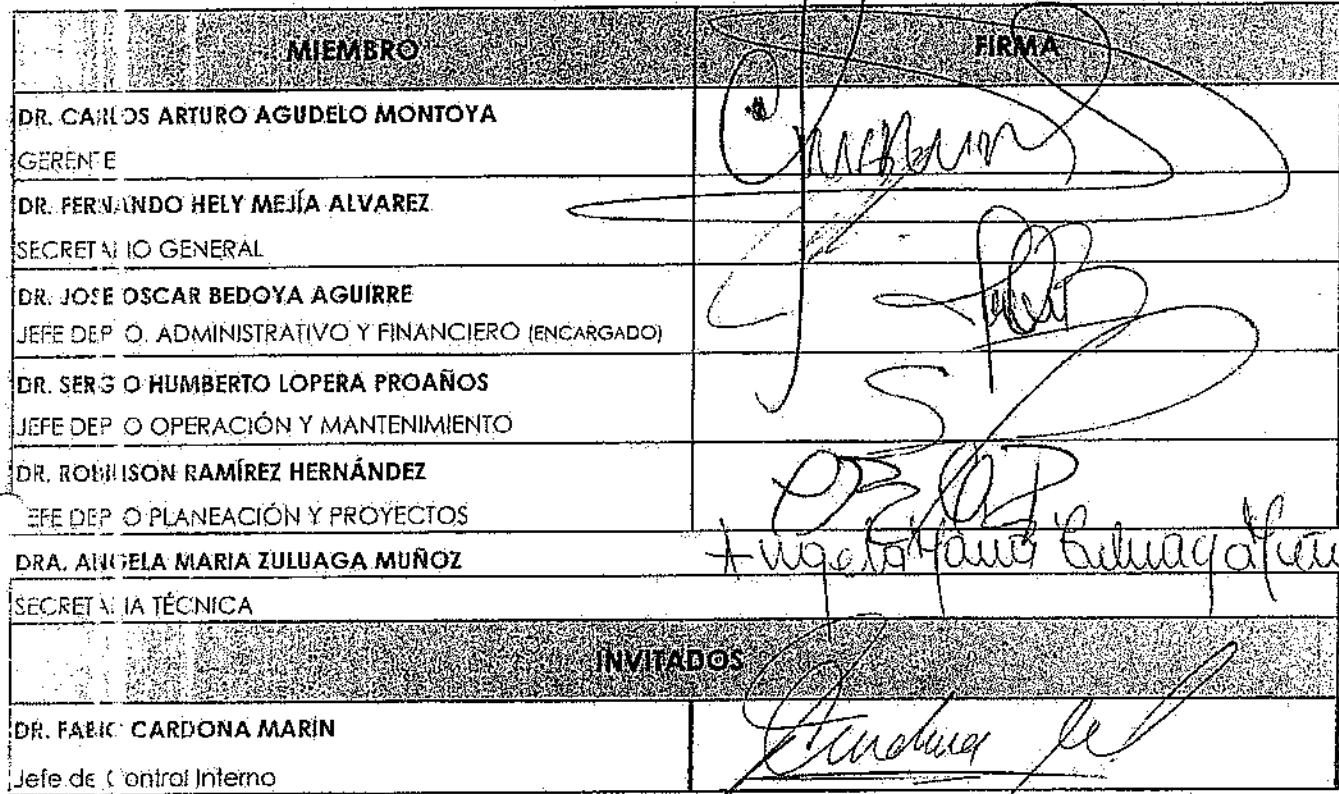 MIEMBRO FIRMA
DR. CARLOS ARTURO AGUDELO MONTOYA
GERENTE
DR. FERNANDO HELY MEJÍA ALVAREZ
SECRETARIO GENERAL
DR. JOSE OSCAR BEDOYA AGUIRRE
JEFE DEPTO. ADMINISTRATIVO Y FINANCIERO (ENCARGADO)
DR. SERGIO HUMBERTO LOPERA PROAÑOS
JEFE DEPTO OPERACIÓN Y MANTENIMIENTO
DR. ROBINSON RAMÍREZ HERNÁNDEZ
JEFE DEPTO PLANEACIÓN Y PROYECTOS
DRA. ANGELA MARIA ZULUAGA MUÑOZ Angela Maria Zuluaga
SECRETARIA TÉCNICA
INVITADOS
DR. FABIO CARDONA MARÍN Cardona
Jefe de Control Interno